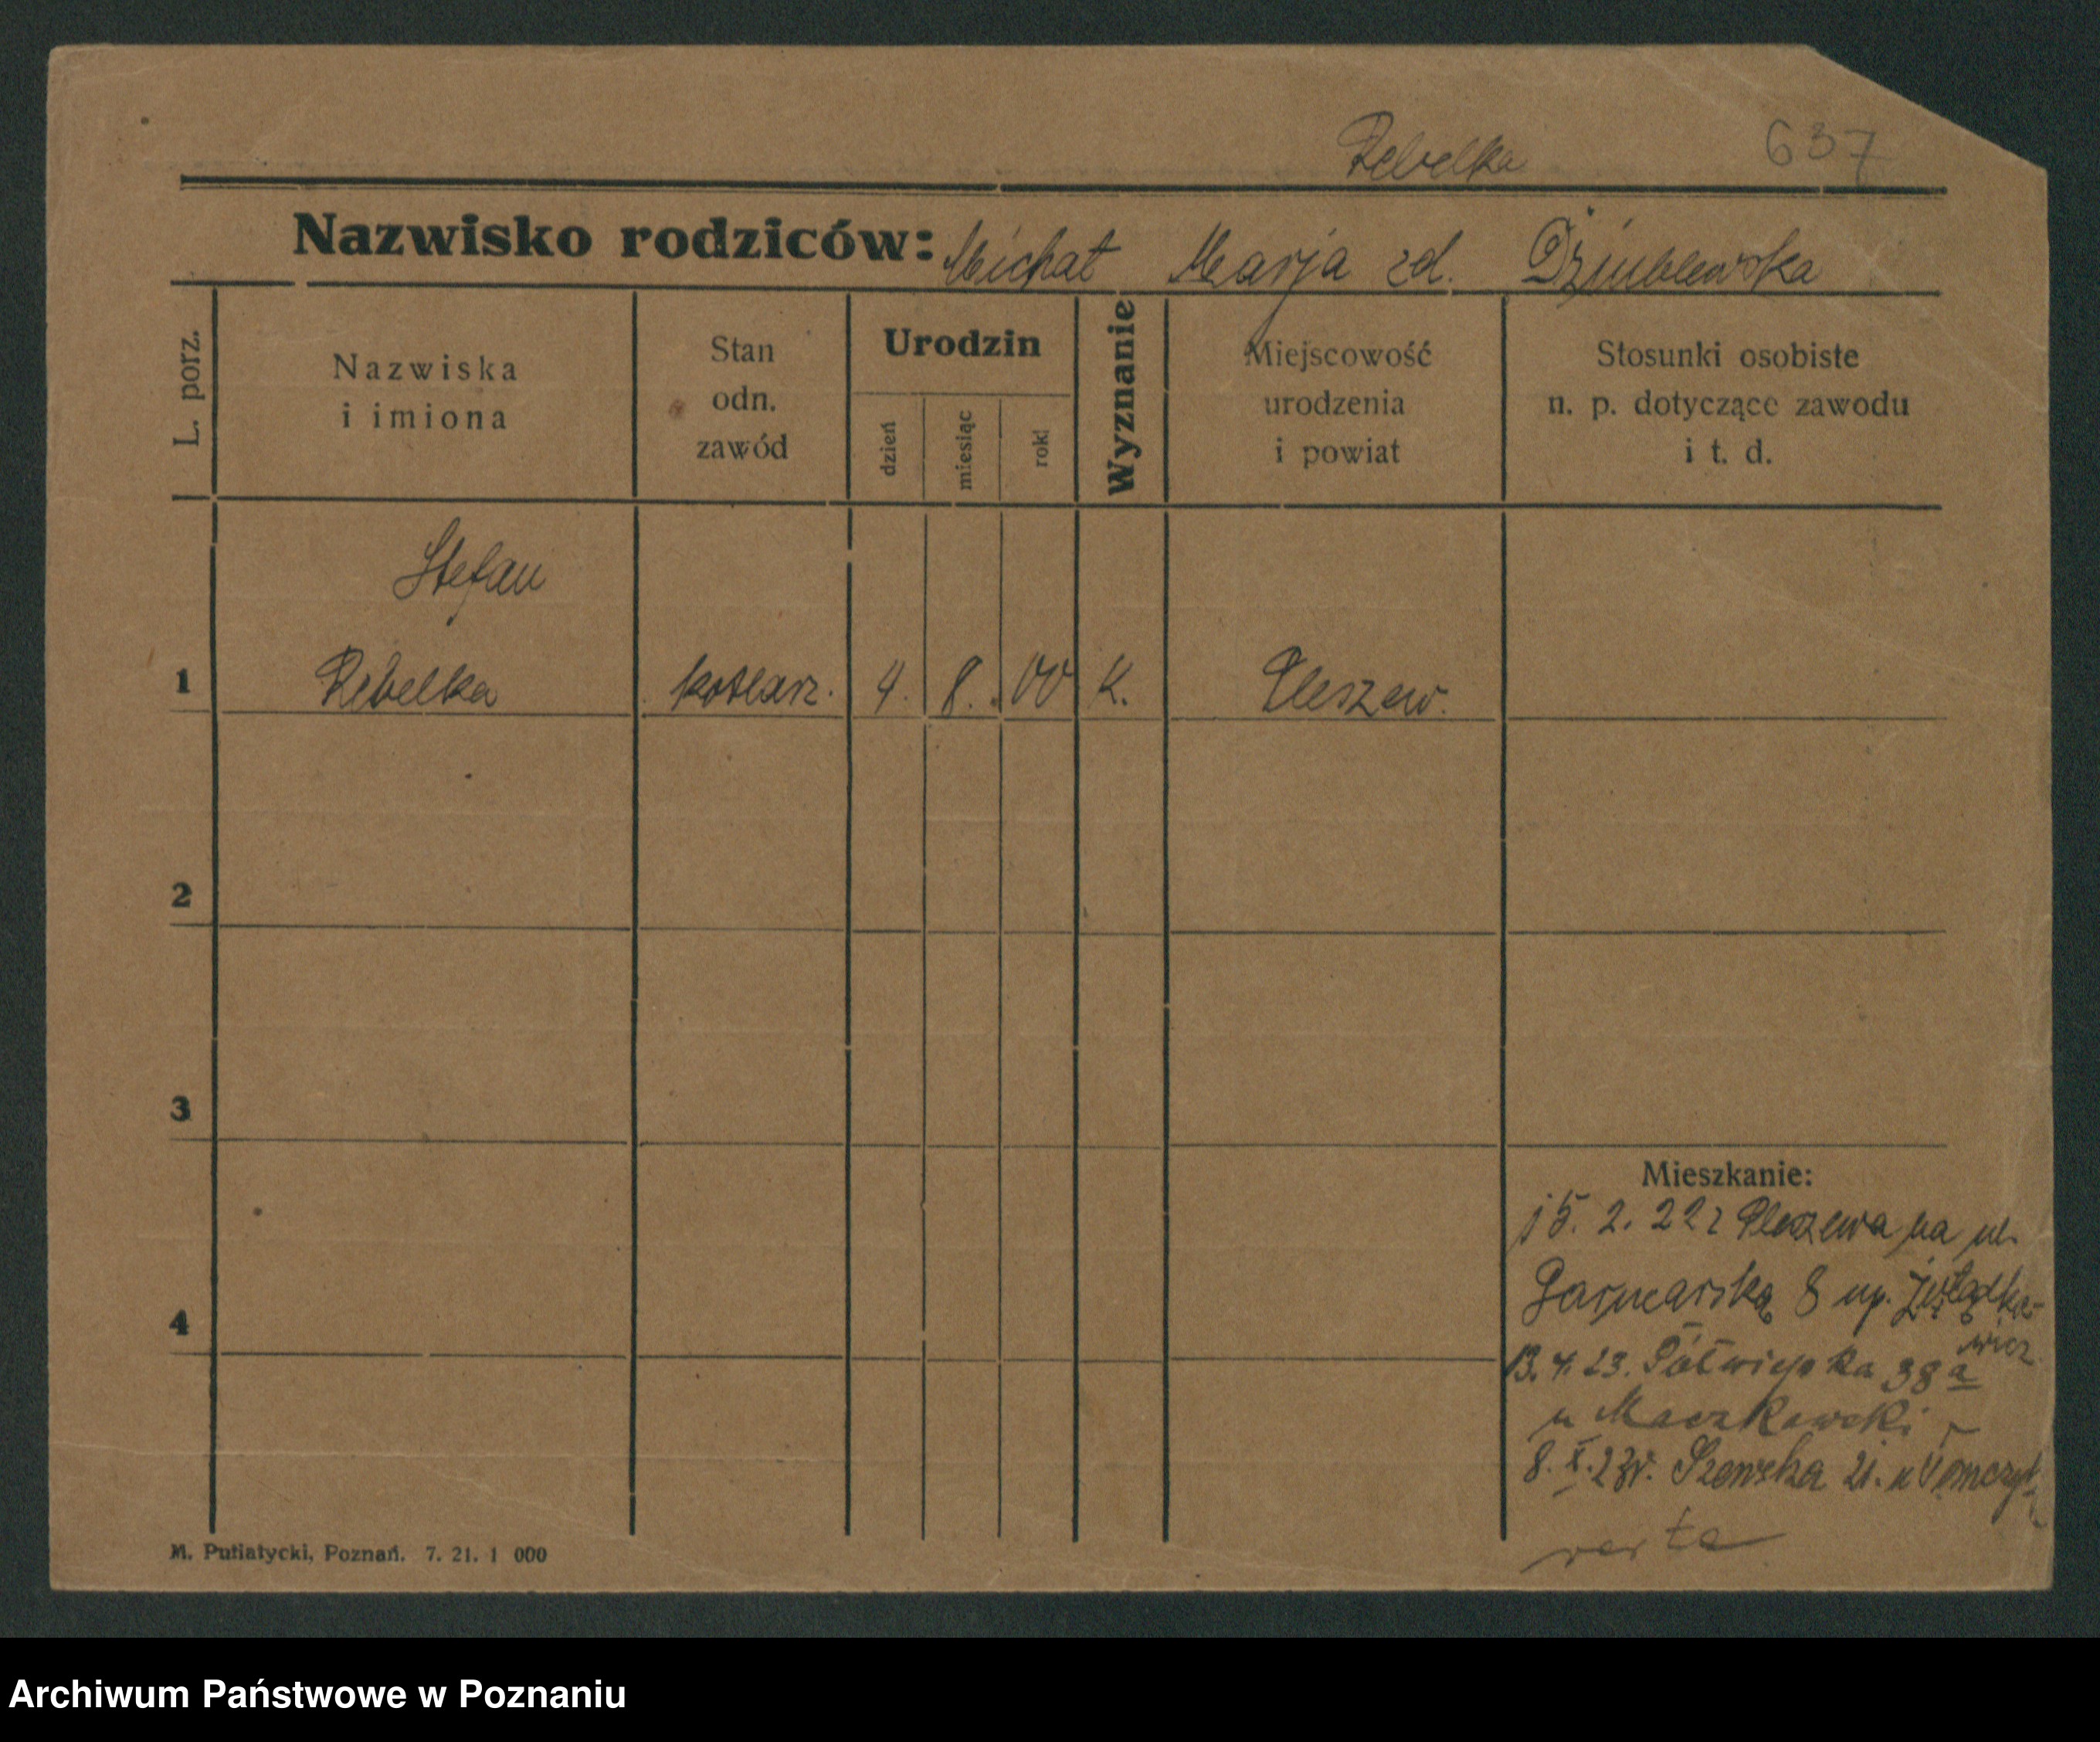 Rebelka 637
Nazwisko rodziców: Michał Marja zd. Dziublewska
L. porz.
Nazwiska
i imiona
Stan
odn.
zawód
Urodzin
dzień
miesiąc
rok
Wyznanie
Miejscowość
urodzenia
i powiat
Stosunki osobiste
n. p. dotyczące zawodu
i t. d.
Stefan
1 Rebelka kotlarz. 4. 8. 00 K. Pleszew.
2
3
4
Mieszkanie:
15. 2. 22 z Pleszewa na ul.
Garncarską 8
13. 4. 23. Półwiejska 38a
u Maczkowski
8. X. 23r. Szewska 21. u
M. Putiatycki, Poznań. 7. 21. 1 000
Archiwum Państwowe w Poznaniu